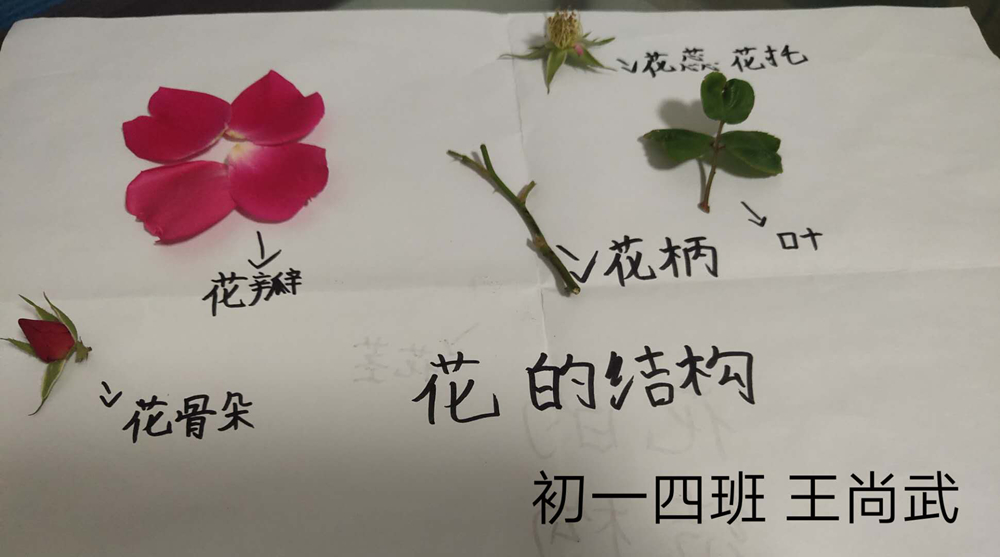 花蕊 花托
叶
花柄
花瓣
花骨朵
花的结构
初一四班 王尚武